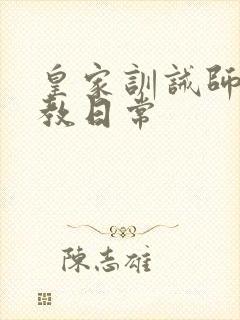 皇家訓誡師
教日常
陳志雄